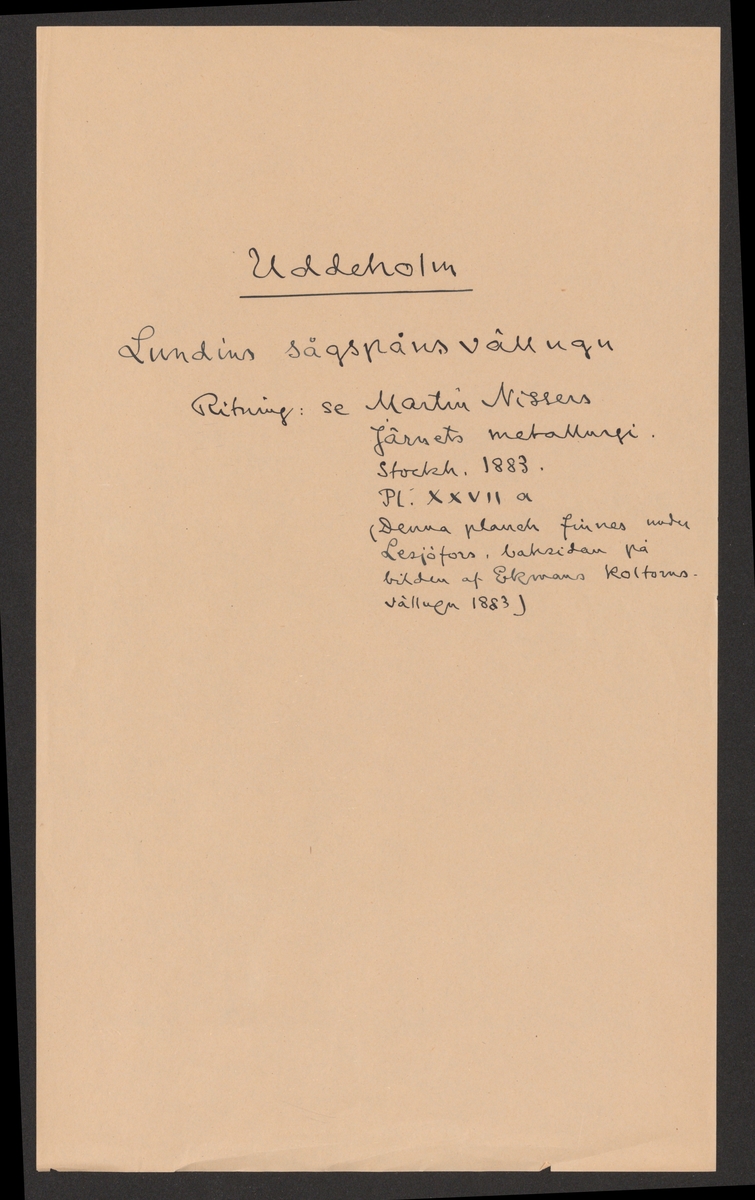 Uddeholm
Lundins sågspånsvällugn
Ritning: se Martin Nissers
Järnets metallurgi.
Stockh. 1883.
Pl. XXVII a
(Denna planch finnes under
Lesjöfors, baksidan på
bilden af Ekmans koltorns-
vällugn 1883)